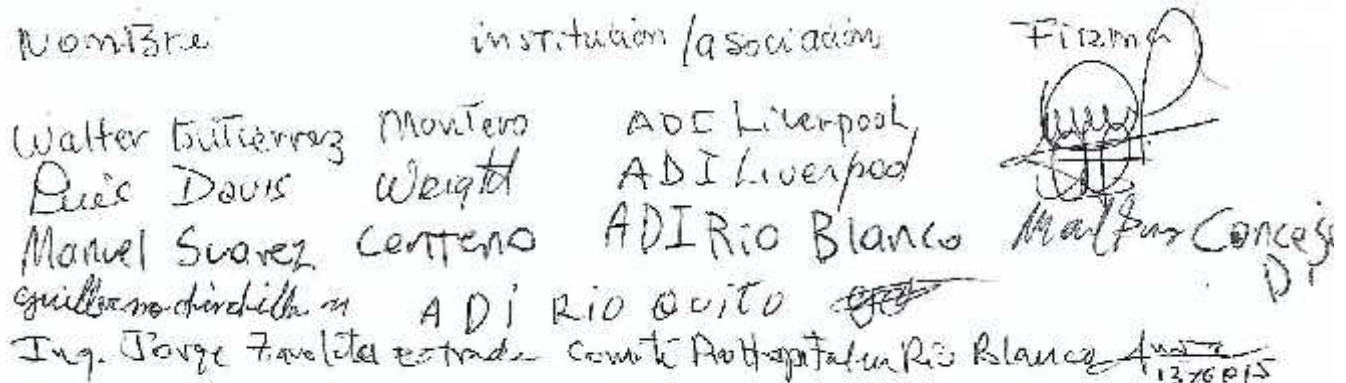 Nombre institución/asociación Firma
Walter Gutierrez Montero ADI Liverpool
Luis Davis Weight ADI Liverpool
Manuel Suarez Centeno ADI Rio Blanco Concejo
Di
Guillermo chinchilla m ADI RIO QUITO
Ing. Jorge Zavaleta estrada Comité Rio Blanco